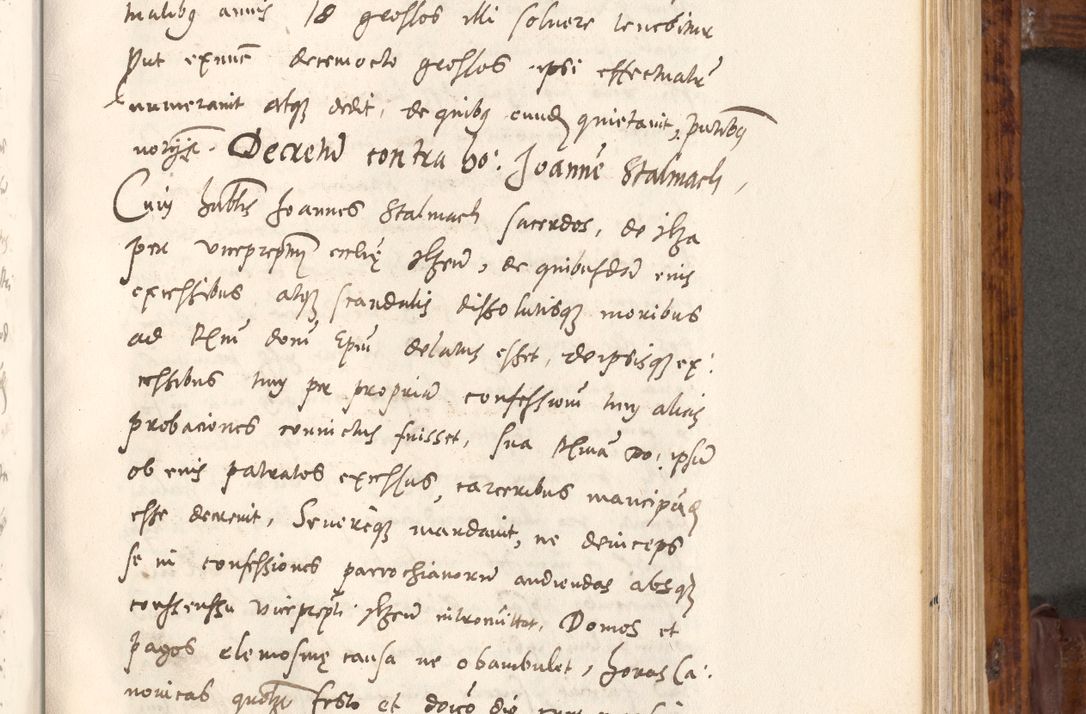 malibus annis 18 grossos illi soluere tenebitur
Put exnunc decemocto grossos ipsi effectualiter
numerauit atque dedit, de quibus eundem quietauit, partibus
Decretum contra ho: Joannem Stalmach,
Cum habilis Joannes Stalmach sacerdos, de Ilza
per viceprepositum ecclie Ilzen, de quibusdam eius
excessibus atque scandalis dissolutisque moribus
ad Rdum domum Epum delatus esset, deipsisque ex:
cessibus tum per propriam confessionem tum alias
probaciones conuictus fuisset, sua Rdma Do: ipsum
ob eius patratos excessus, carceribus mancipandum
esse decreuit, Seuereque mandauit, ne deinceps
se in confessiones parrochianorum audiendas absque
consensu viceprepti Ilzen intromittat, Domos et
pagos elemosine causa ne obambulet, horas Ca:
nonicas festo et die